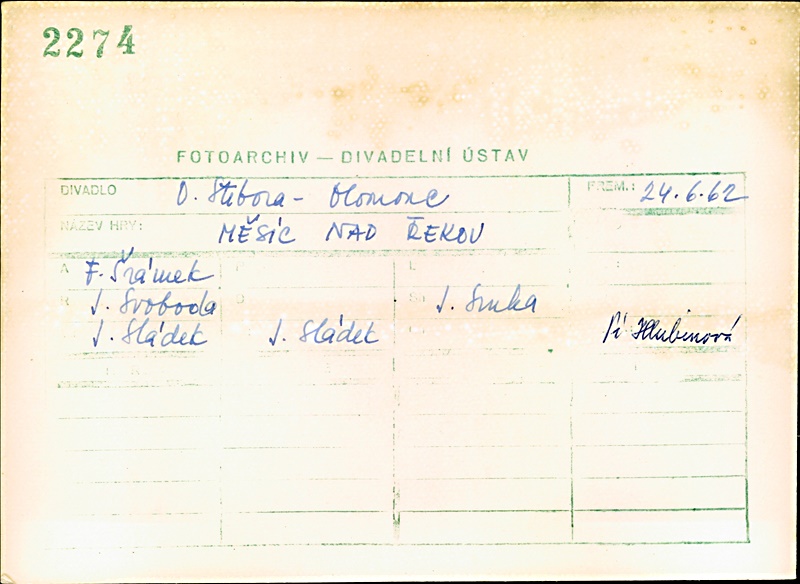 2274
FOTOARCHIV — DIVADELNÍ ÚSTAV
DIVADLO O. Stibora - Olomouc PREM.: 24.6.62
NÁZEV HRY: MĚSÍC NAD ŘEKOU
A F. Šrámek
R J. Svoboda J. Srnka
J. Sládek J. Sládek Pí Hlubinová